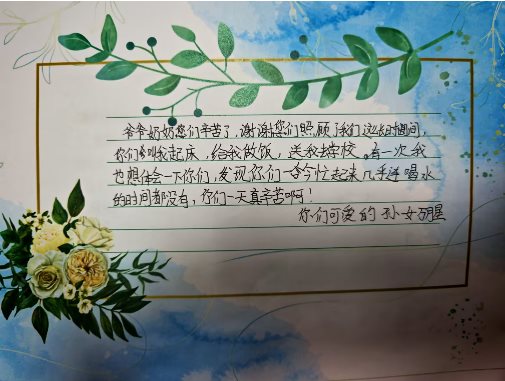 爷爷奶奶您们辛苦了，谢谢您们照顾了我们这么长时间，
你们叫我起床，给我做饭，送我去学校。有一次我
也想体会一下你们，发现你们一分今忙起来几乎连喝水
的时间都没有，你们一天真辛苦啊！
你们可爱的孙女